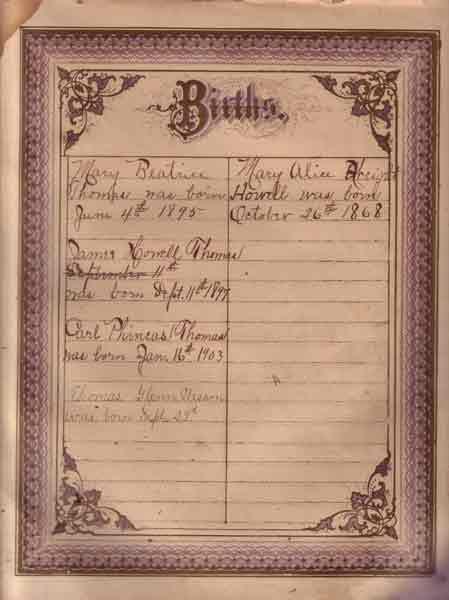 Births.
Mary Beatrice
Thomas was born
June 4th 1895
James Howell Thomas
September 11th
was born Sept. 11th 1897
Carl Phineas Thomas
was born Jan. 16th 1903
Thomas Glenn
was born Sept 29th
Mary Alice
Howell was born
October 26th 1868